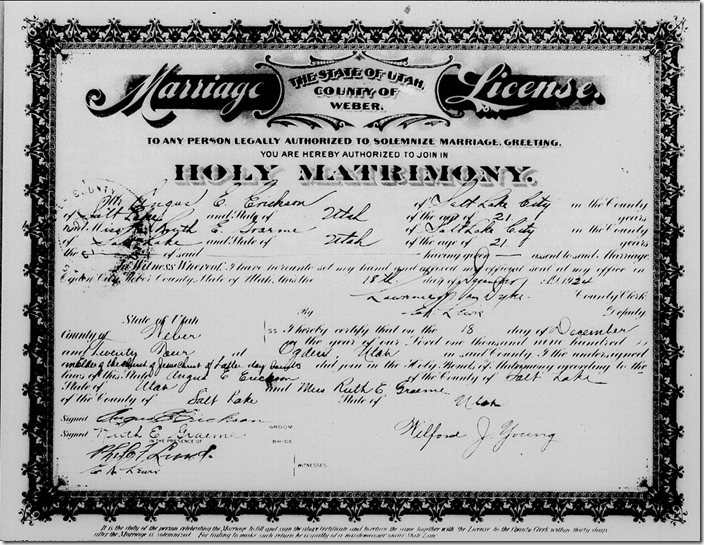 Marriage License.
THE STATE OF UTAH,
COUNTY OF
WEBER.
TO ANY PERSON LEGALLY AUTHORIZED TO SOLEMNIZE MARRIAGE, GREETING.
YOU ARE HEREBY AUTHORIZED TO JOIN IN
HOLY MATRIMONY.
Mr. Angus E. Erickson of Salt Lake City in the County
of Salt Lake and State of Utah of the age of 21 years
and Miss Ruth E. Graeme of Salt Lake City in the County
of Salt Lake and State of Utah of the age of 21 years
the of said having given consent to said Marriage
In Witness Whereof, I have hereunto set my hand and affixed my official seal at my office in
Ogden City, Weber County, State of Utah, this 18th day of December A.D. 1924
Lawrence Van Dyke County Clerk
By Lewis Deputy
State of Utah
County of Weber ss I hereby certify that on the 18 day of December
in the year of our Lord one thousand nine hundred
and twenty four at Ogden, Utah in said County I the undersigned
an Elder of the church of Jesus Christ of Latter day Saints did join in the Holy Bonds of Matrimony according to the
laws of this State Angus E. Erickson of the County of Salt Lake
State of Utah and Miss Ruth E. Graeme
of the County of Salt Lake State of Utah
Signed Angus E. Erickson GROOM
Signed Ruth E. Graeme BRIDE
IN THE PRESENCE OF
WITNESSES
Lewis
Wilford J. Young
It is the duty of the person celebrating the Marriage to fill and sign the above Certificate and to return the same together with the License to the County Clerk within thirty days
after the Marriage is solemnized. For failing to make such return he is guilty of a misdemeanor under State Law